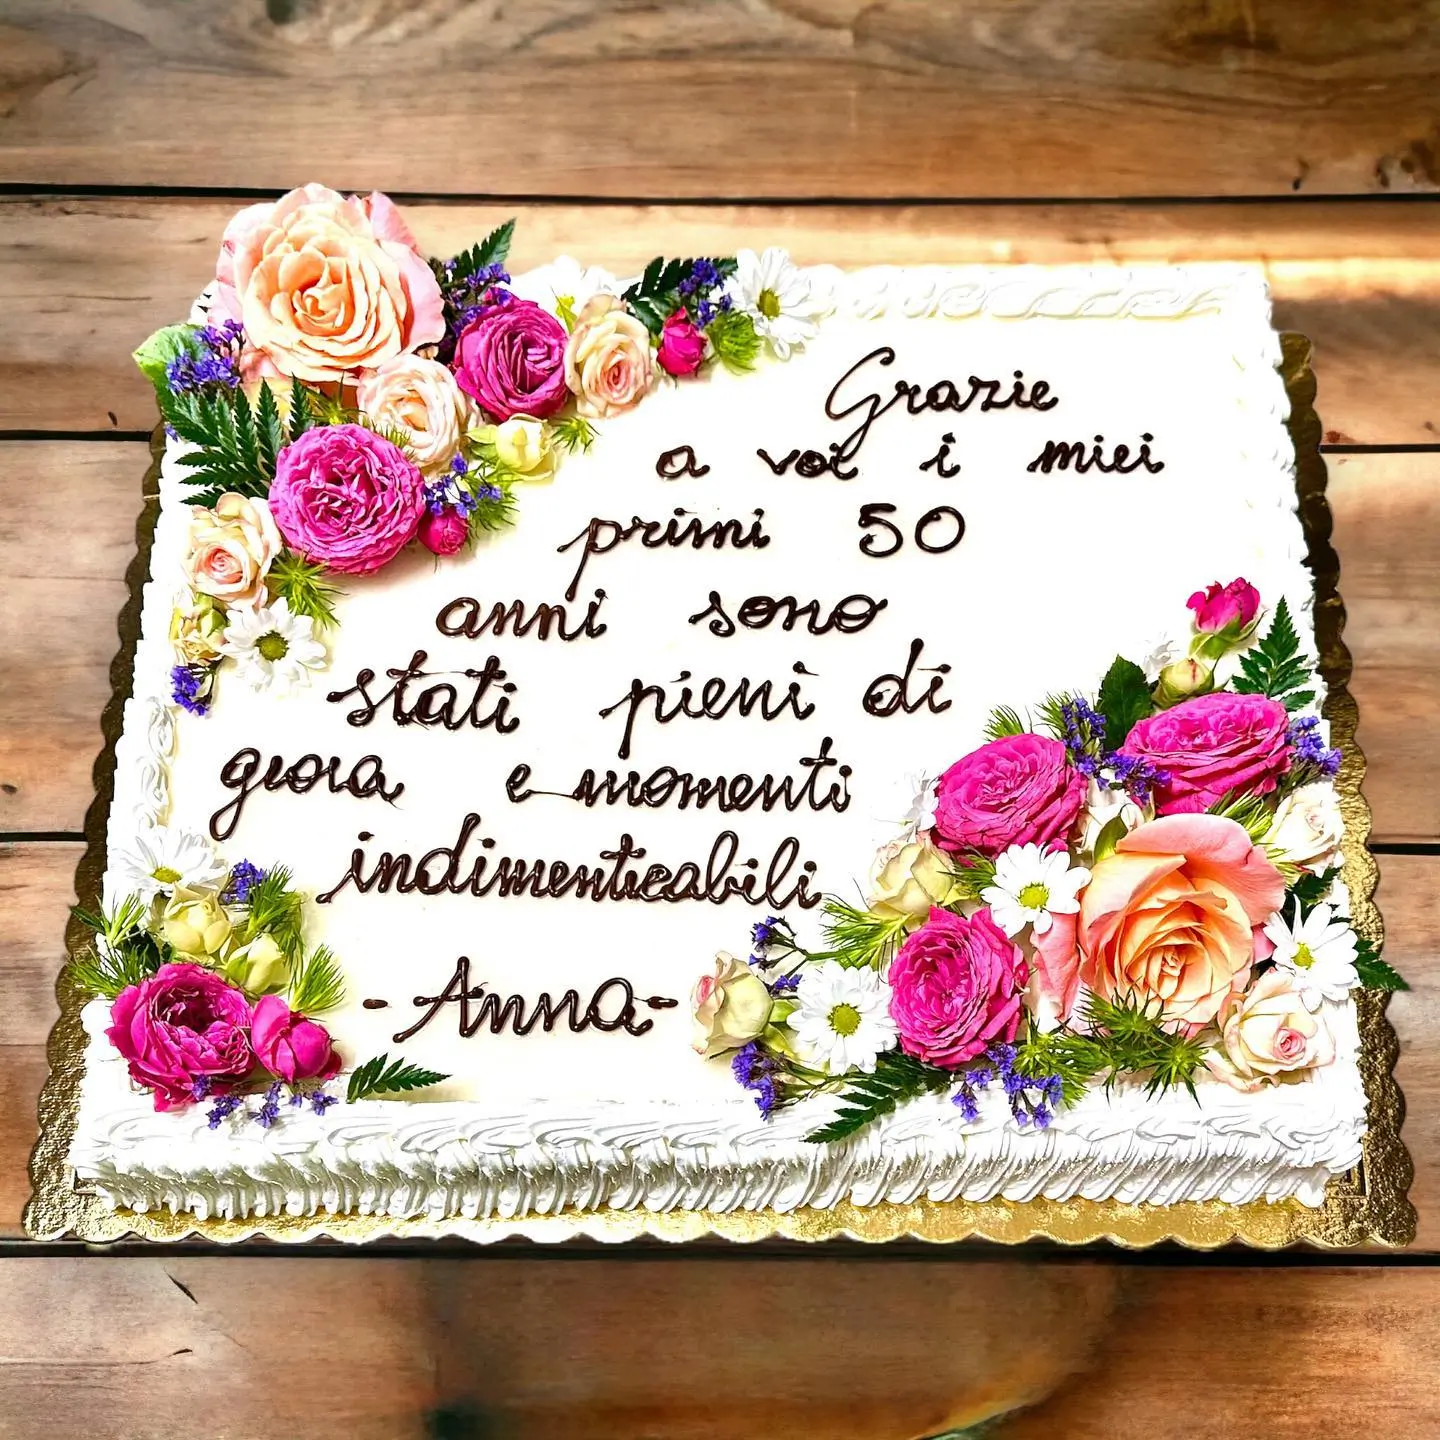 Grazie
a voi i miei
primi 50
anni sono
stati pieni di
gioia e momenti
indimenticabili
-Anna-